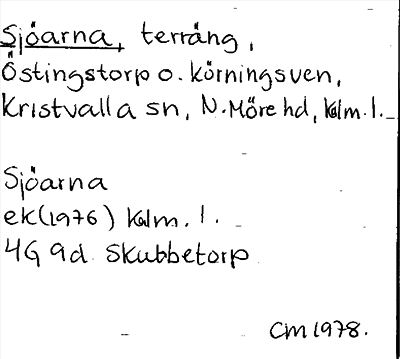 Sjöarna, terräng,
Östingstorp o. körningsven,
Kristvalla sn, N. Möre hd, Kalm. l.
Sjöarna
ek (1976) Kalm. l.
4G 9d Skubbetorp
CM 1978.